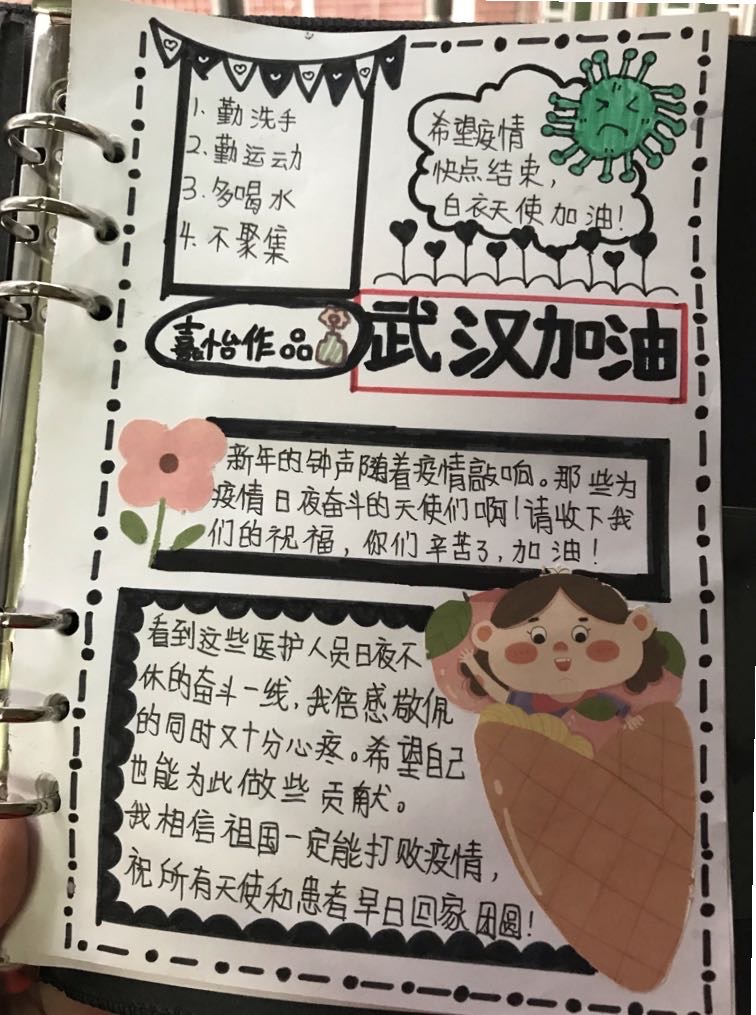 1. 勤洗手
2. 勤运动
3. 多喝水
4. 不聚集
希望疫情
快点结束，
白衣天使加油！
嘉怡作品
武汉加油
新年的钟声随着疫情敲响。那些为
疫情日夜奋斗的天使们啊！请收下我
们的祝福，你们辛苦了，加油！
看到这些医护人员日夜不
休的奋斗一线，我倍感敬佩
的同时又十分心疼。希望自己
也能为此做些贡献。
我相信祖国一定能打败疫情，
祝所有天使和患者早日回家团圆！